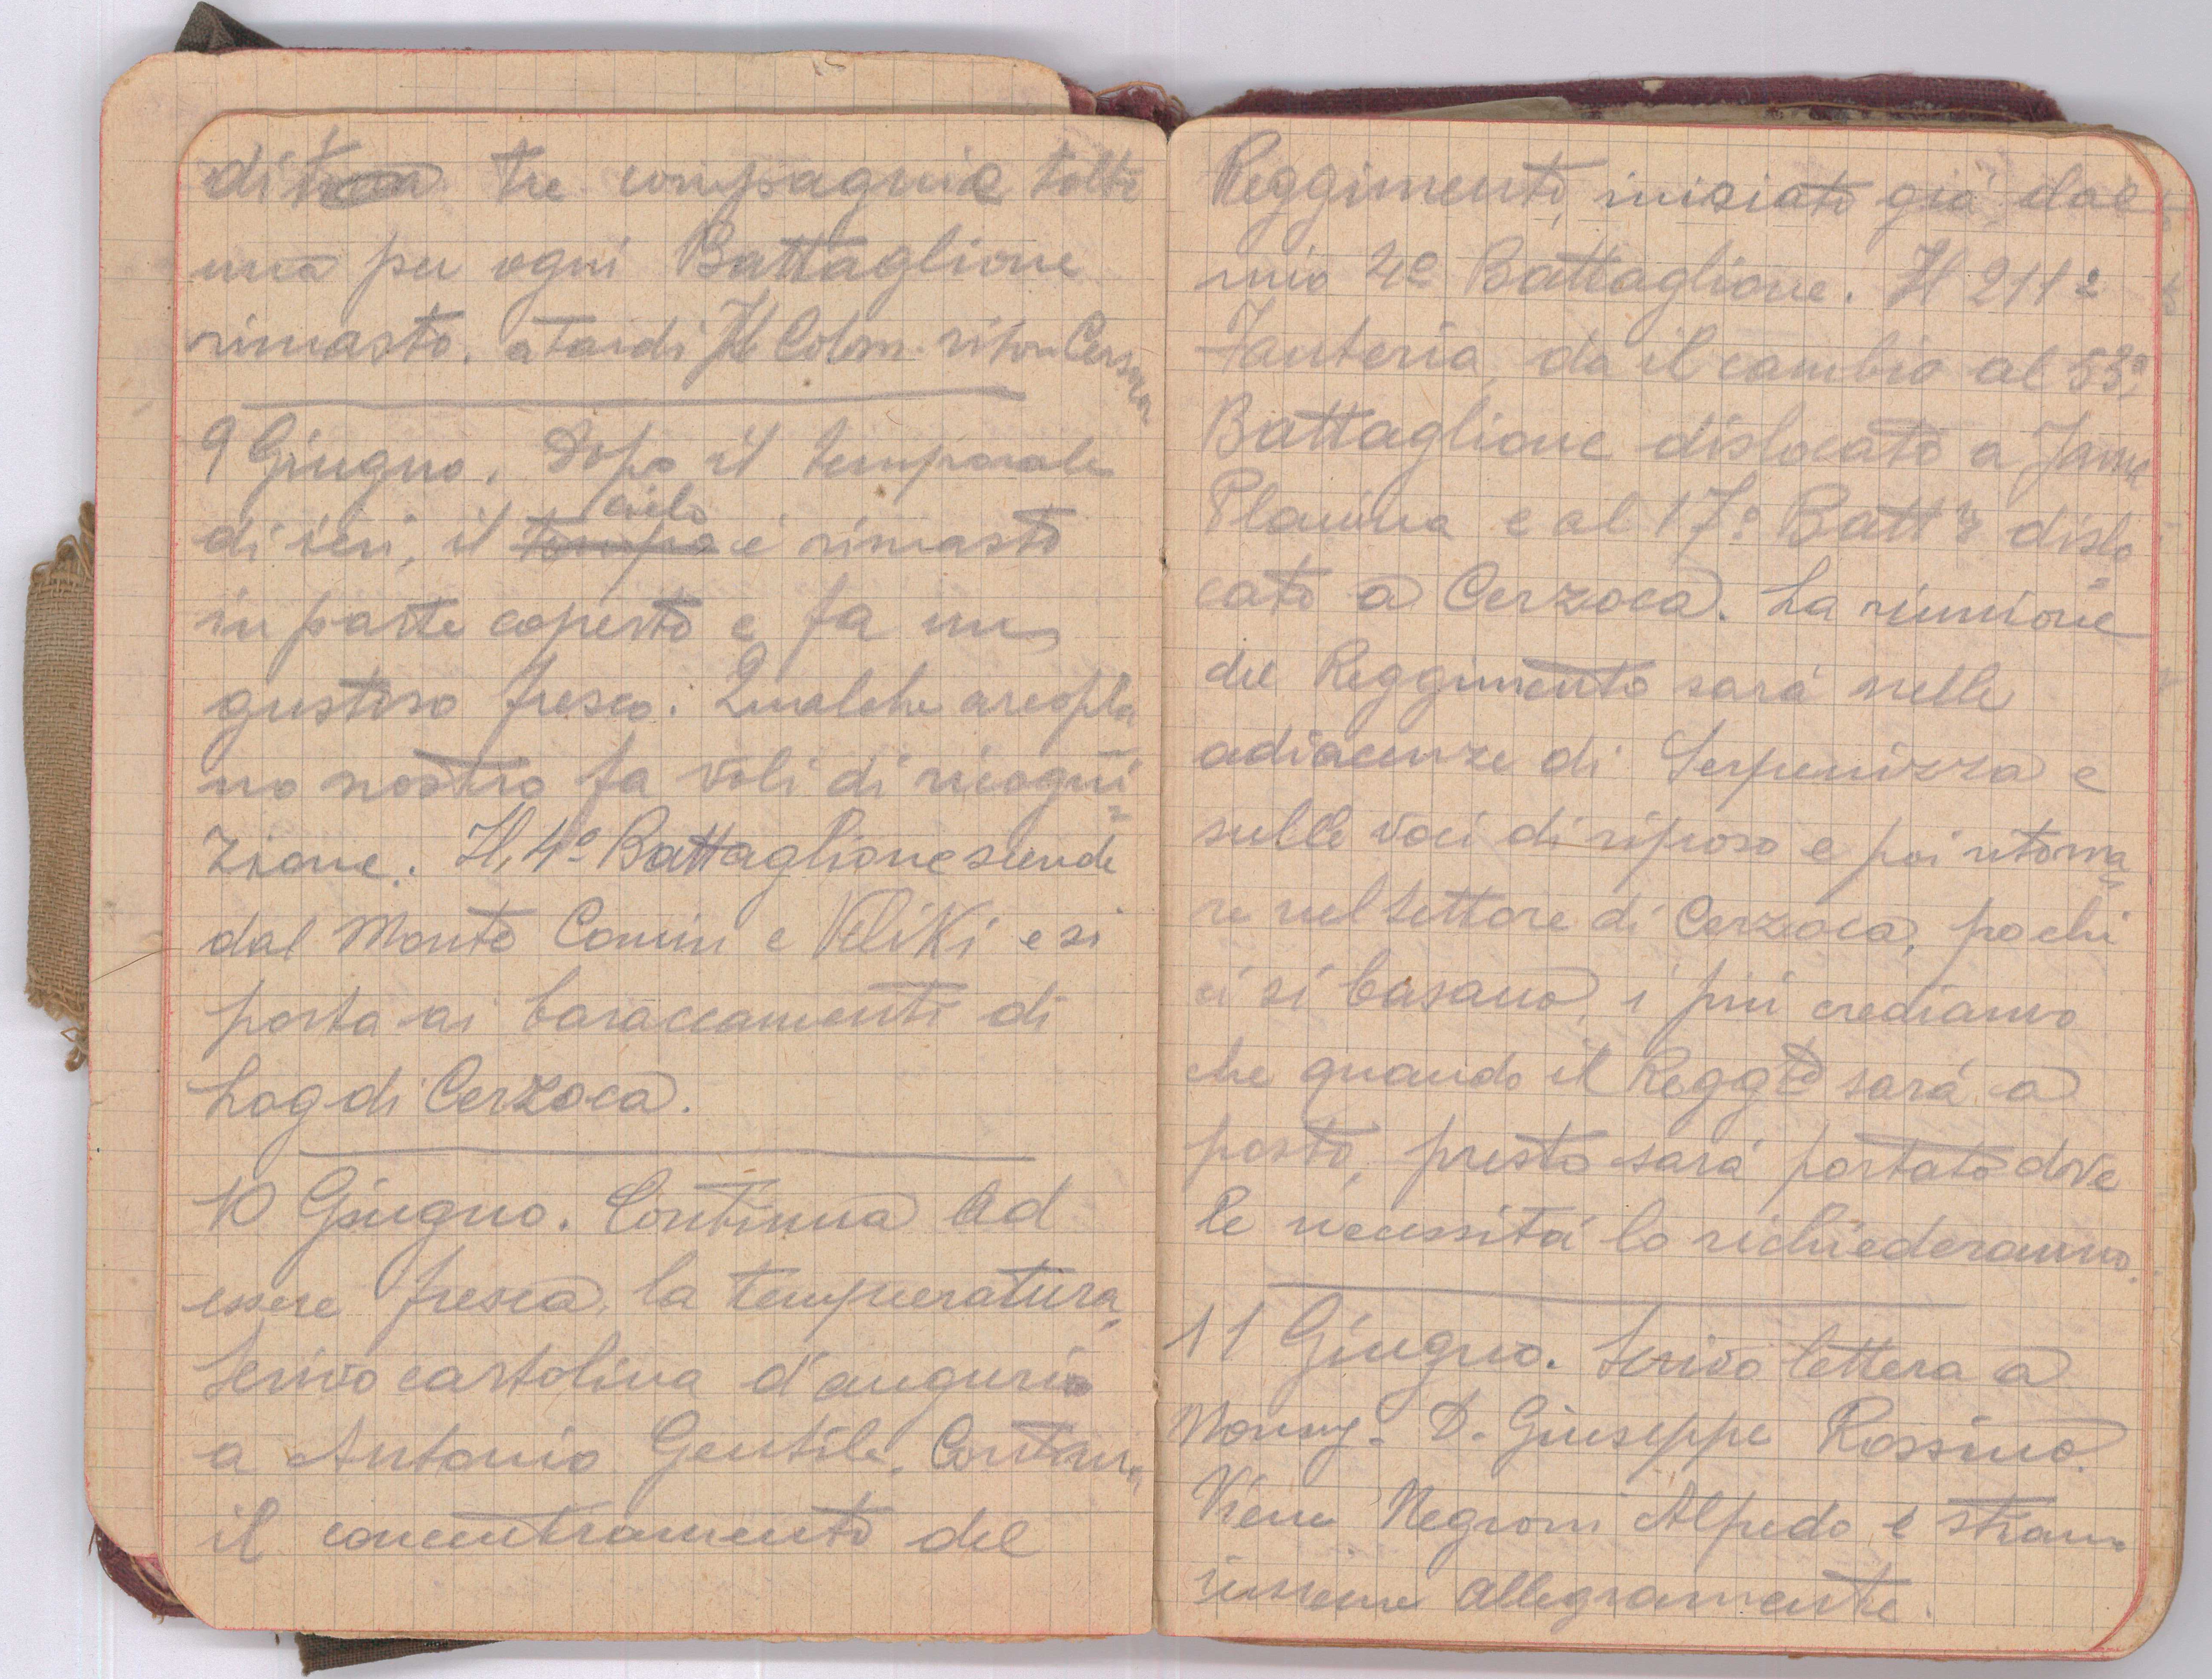 di tre compagnie tolte
una per ogni Battaglione
rimasto. a tardi Il Colom. ritor.
9 Giugno. Dopo il temporale
di ieri, il tempo cielo è rimasto
in parte coperto e fa un
gustoso fresco. Qualche areopla
no nostro fa voli di ricogni=
zione. Il 4º Battaglione scende
dal Monte Conin e Veliki e si
porta ai baraccamenti di
Log di Cerzoca.
10 Giugno. Continua ad
essere fresca, la temperatura,
Scrivo cartolina d'augurio
a Antonio Gentile. Continua
il concentramento del
Reggimento, iniziato già dal
mio 4º Battaglione. Il 211º
Fanteria da il cambio al 53º
Battaglione dislocato a Jama
Planina e al 17º Battº dislo
cato a Cerzoca. La riunione
del Reggimento sará nelle
adiacenze di Serpenizza e
sulle voci di riposo e poi ritorna=
re nel settore di Cerzoca, pochi
ci si basano, i piú crediamo
che quando il Reggto sará a
posto, presto sará portato dove
le necessitá lo richiederanno.
11 Giugno. Scrivo lettera a
Monsg. D. Giuseppe Rossino.
Viene Negroni Alfredo e stiamo
insieme allegramente.